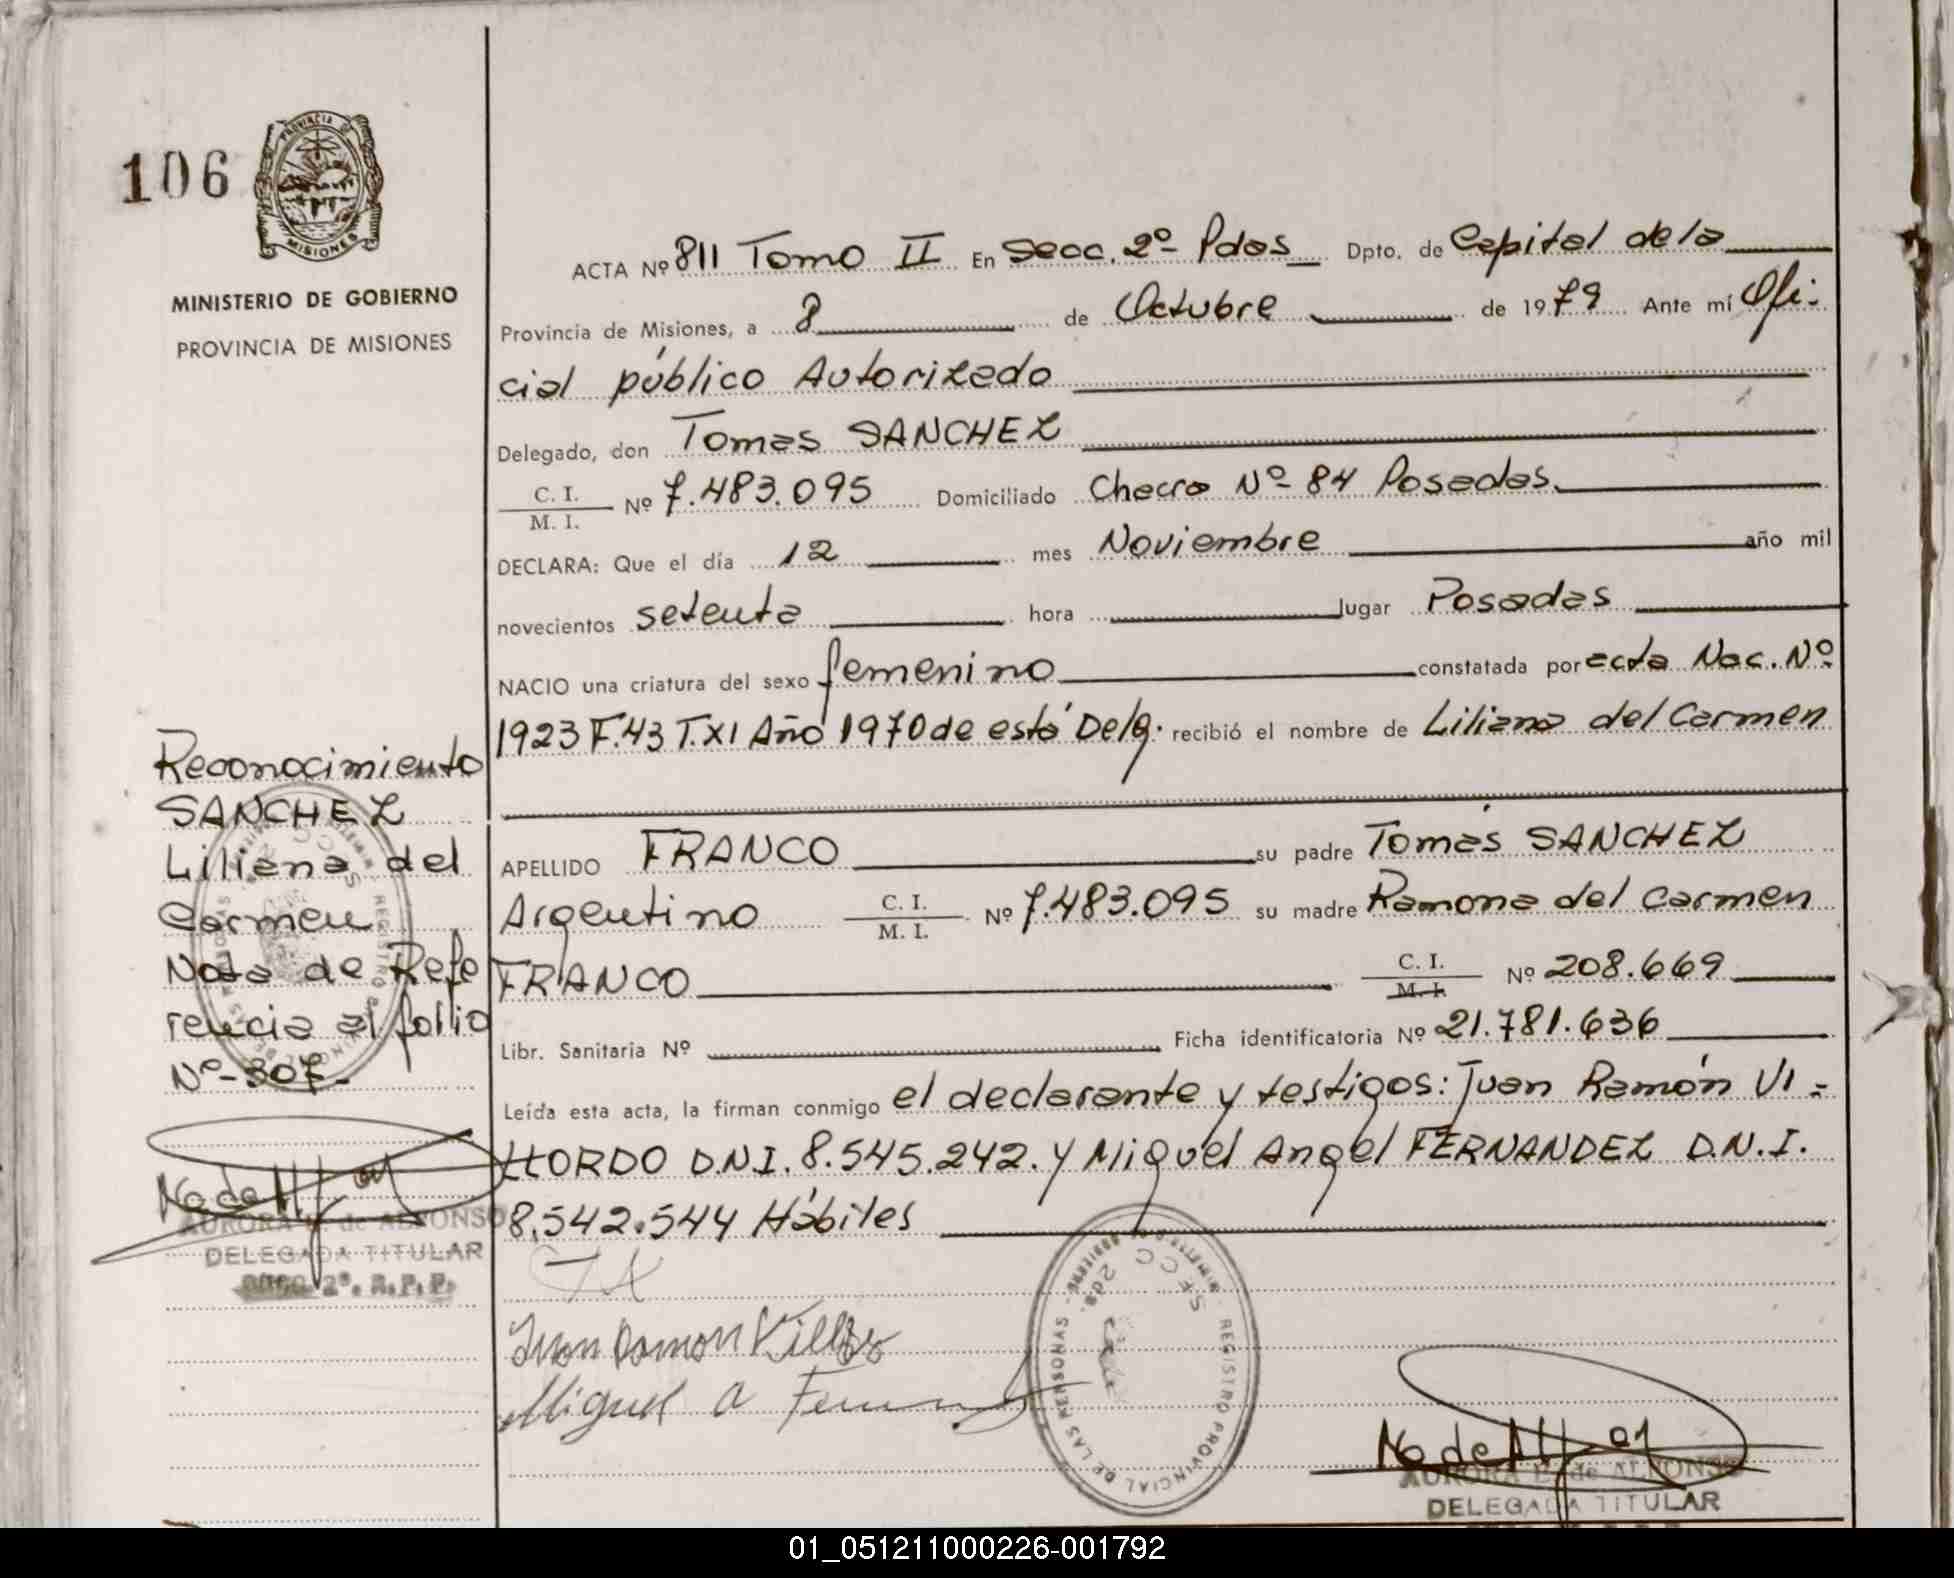 106
PROVINCIA DE
MISIONES
MINISTERIO DE GOBIERNO
PROVINCIA DE MISIONES
ACTA Nº 811 Tomo II En Secc. 2º Pdas Dpto. de Capital de la
Provincia de Misiones, a 8 de Octubre de 1979 Ante mí Ofi-
cial público Autorizado
Delegado, don Tomas SANCHEZ
C. I.
M. I. Nº 7.483.095 Domiciliado Chacra Nº 84 Posadas.
DECLARA: Que el día 12 mes Noviembre año mil
novecientos setenta hora lugar Posadas
NACIO una criatura del sexo femenino constatada por acta Nac. Nº
1923 F.43 T.XI Año 1970 de está Delg. recibió el nombre de Liliana del Carmen
APELLIDO FRANCO su padre Tomás SANCHEZ
Argentino C. I.
M. I. Nº 7.483.095 su madre Ramona del Carmen
FRANCO C. I.
M. I. Nº 208.669
Libr. Sanitaria Nº Ficha identificatoria Nº 21.781.636
Leída esta acta, la firman conmigo el declarante y testigos: Juan Ramón VI=
LLORDO D.N.I. 8.545.242. y Miguel Angel FERNANDEZ D.N.I.
8.542.544 Hábiles
Reconocimiento
SANCHEZ
Liliana del
Carmen
Nota de Refe
rencia al folio
Nº-307-
AURORA de ALFONSO
DELEGADA TITULAR
2º. R.P.P.
Juan Ramon
Miguel A
REGISTRO PROVINCIAL DE LAS PERSONAS
SECC 2da.
AURORA de ALFONSO
DELEGADA TITULAR
01_051211000226-001792